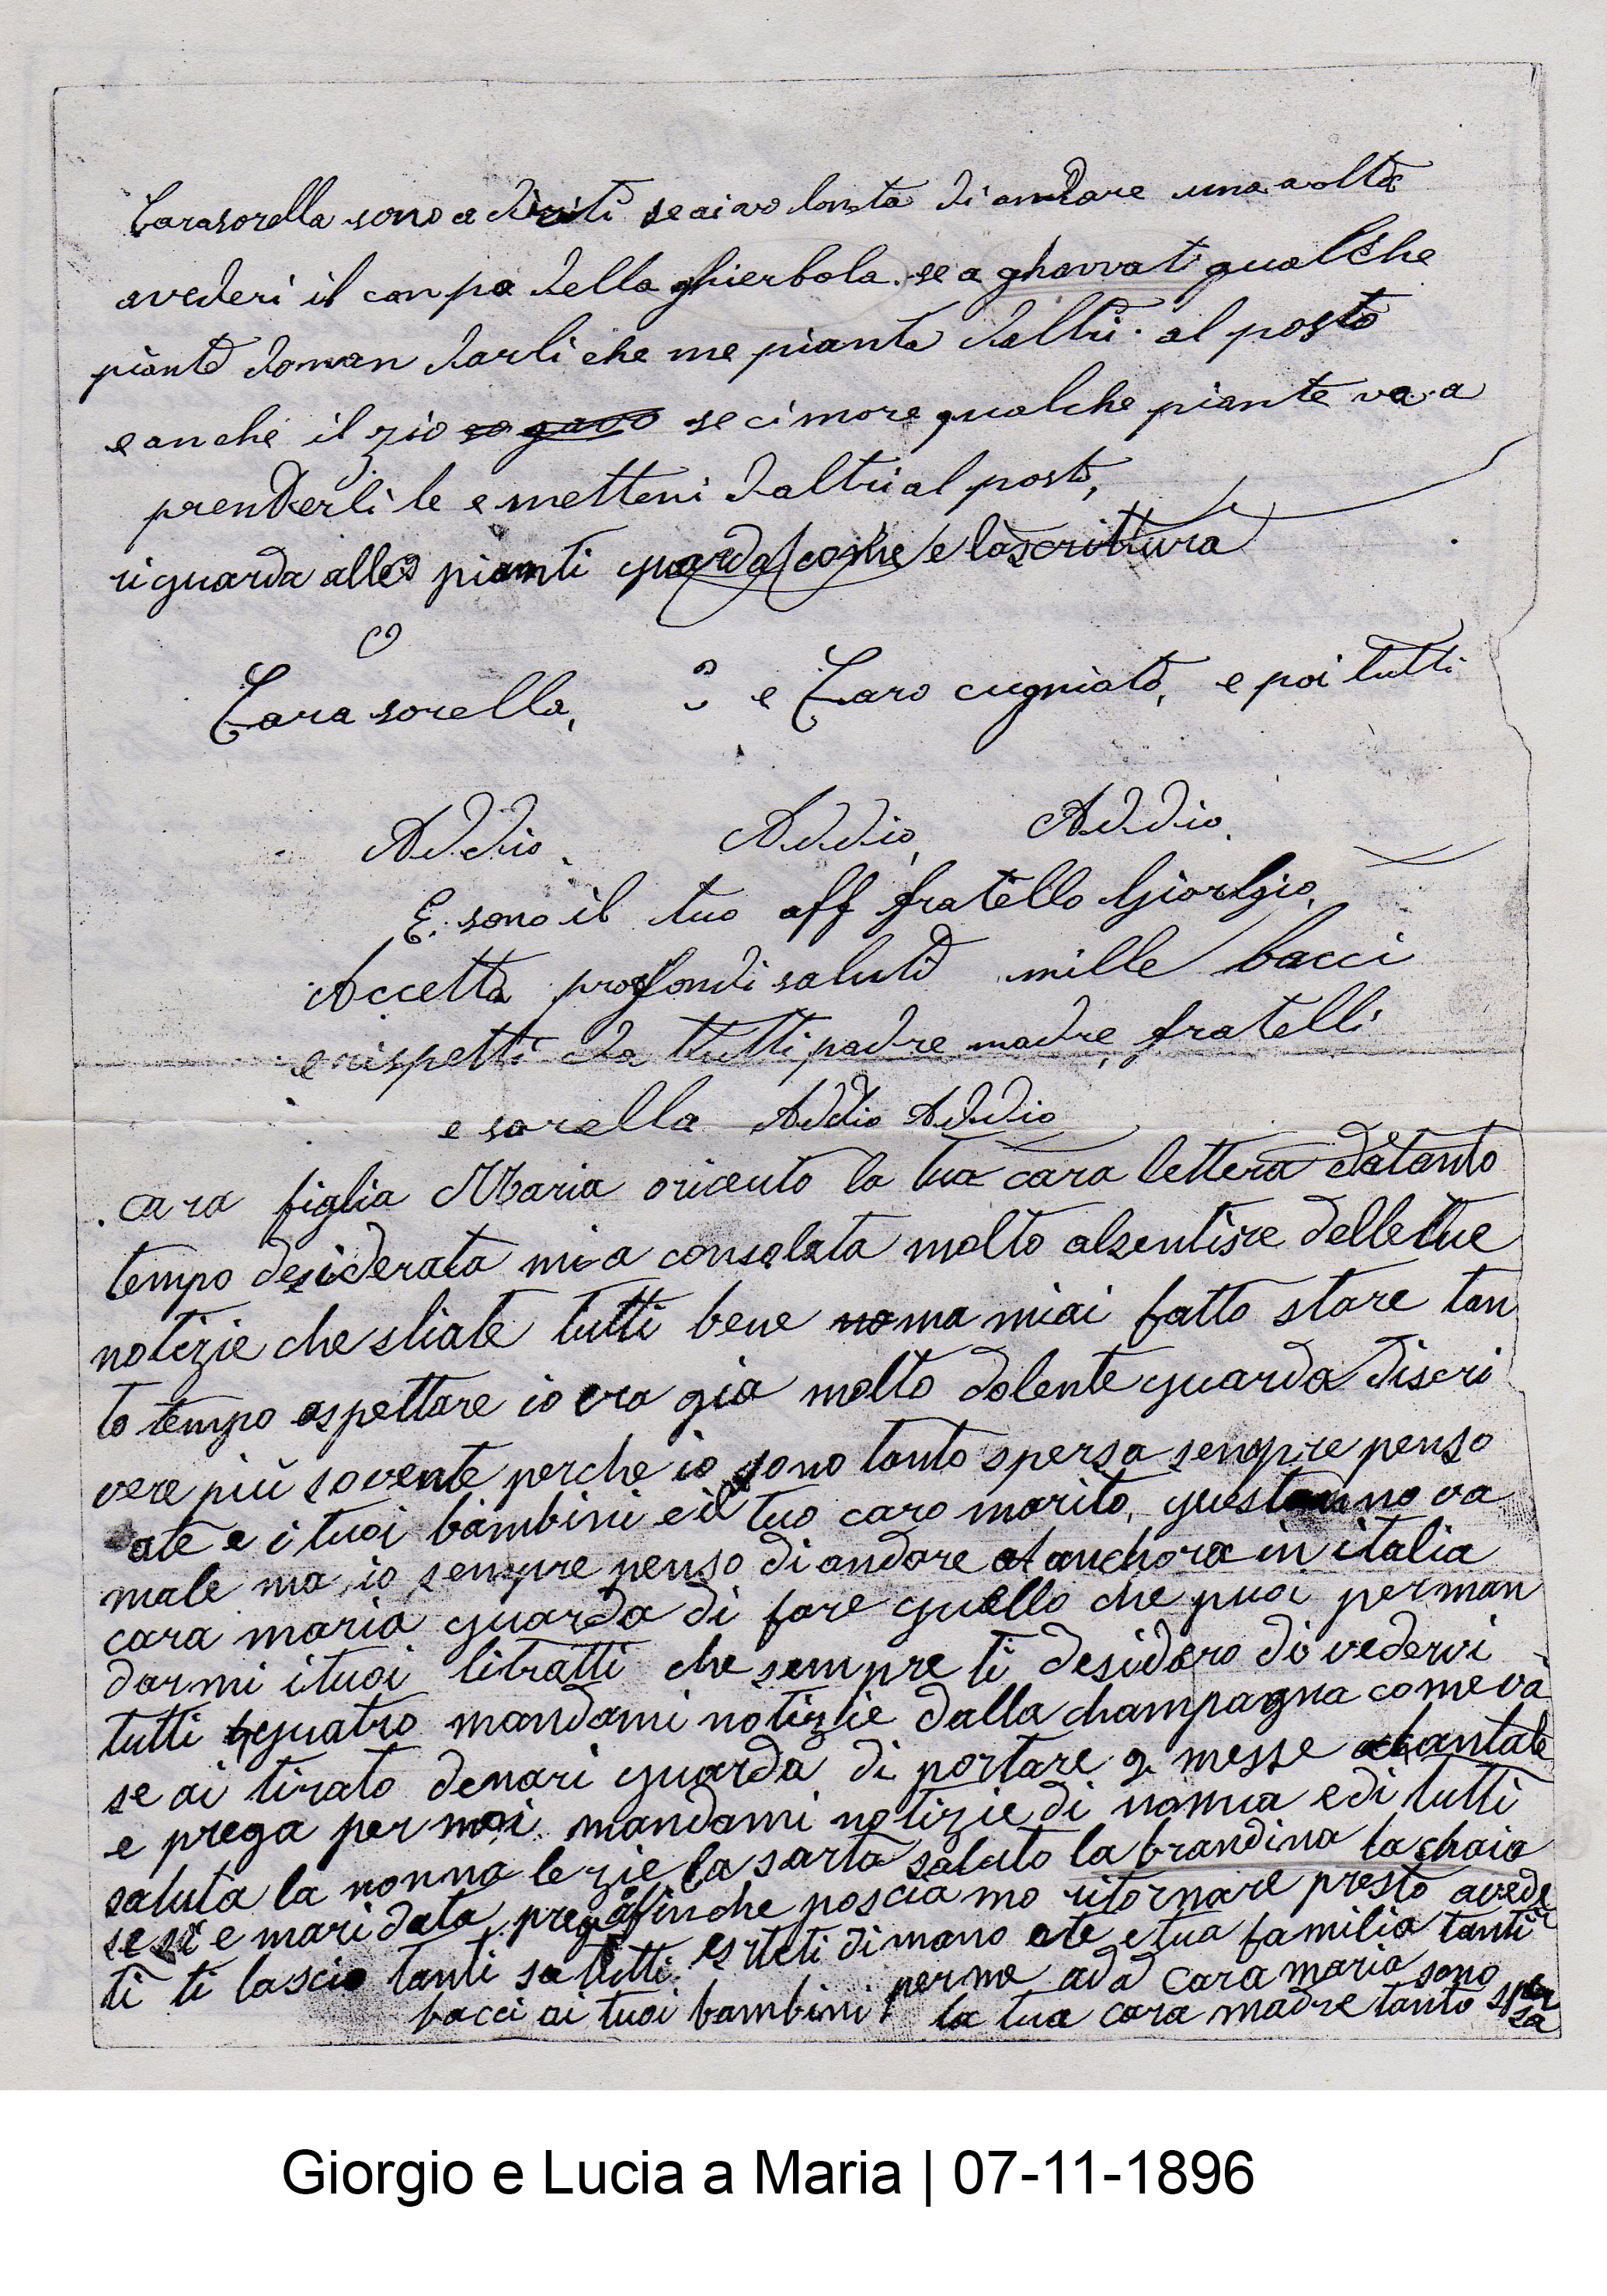 Carasorella sono a dirti se ai vo lonta di andare una avolta
avederi il canpo della ghierbola. se a ghavvati qualche
piante doman darli che me pianta daltri. al posto
e anche il zio se ci more qualche piante va a
prenderli le e metteni daltri al posto,
riguarda alle pianti guarda come e lascrittura
Cara sorella, e Caro cugniato, e poi tutti
Addio. Addio, Addio.
E. sono il tuo aff fratello Giorgio,
Accetta profondi saluti mille bacci
e rispetti da tutti padre madre, fratelli
e sorella Addio Addio
cara figlia Maria oriceuto la tua cara lettera datanto
tempo desiderata mi a consolata molto alsentire delletue
notizie che stiate tutti bene ma miai fatto stare tan
to tempo aspettare io era gia molto dolente guarda discri
vere più sovente perche io sono tanto spersa senpre penso
ate e i tuoi bambini e il tuo caro marito, questanno va
male ma io senpre penso di andare anchora in italia
cara maria guarda di fare quello che puoi perman
darmi i tuoi litratti che sempre ti desidero di vedervi
tutti quatro mandami notizie dalla champagna comevà
se ai tirato denari guarda di portare 2 messe chantate
e prega per noi mandami notizie di nonna e di tutti
saluta la nonna le zie la sarta saluto la brandina la chaia
se si e maridata, prega afinche posciamo ritornare presto avede
ti ti lascio tanti saluti streti di mano ate e tua familia tanti
bacci ai tuoi bambini per me cara maria sono
la tua cara madre tanto spersa
Giorgio e Lucia a Maria | 07-11-1896